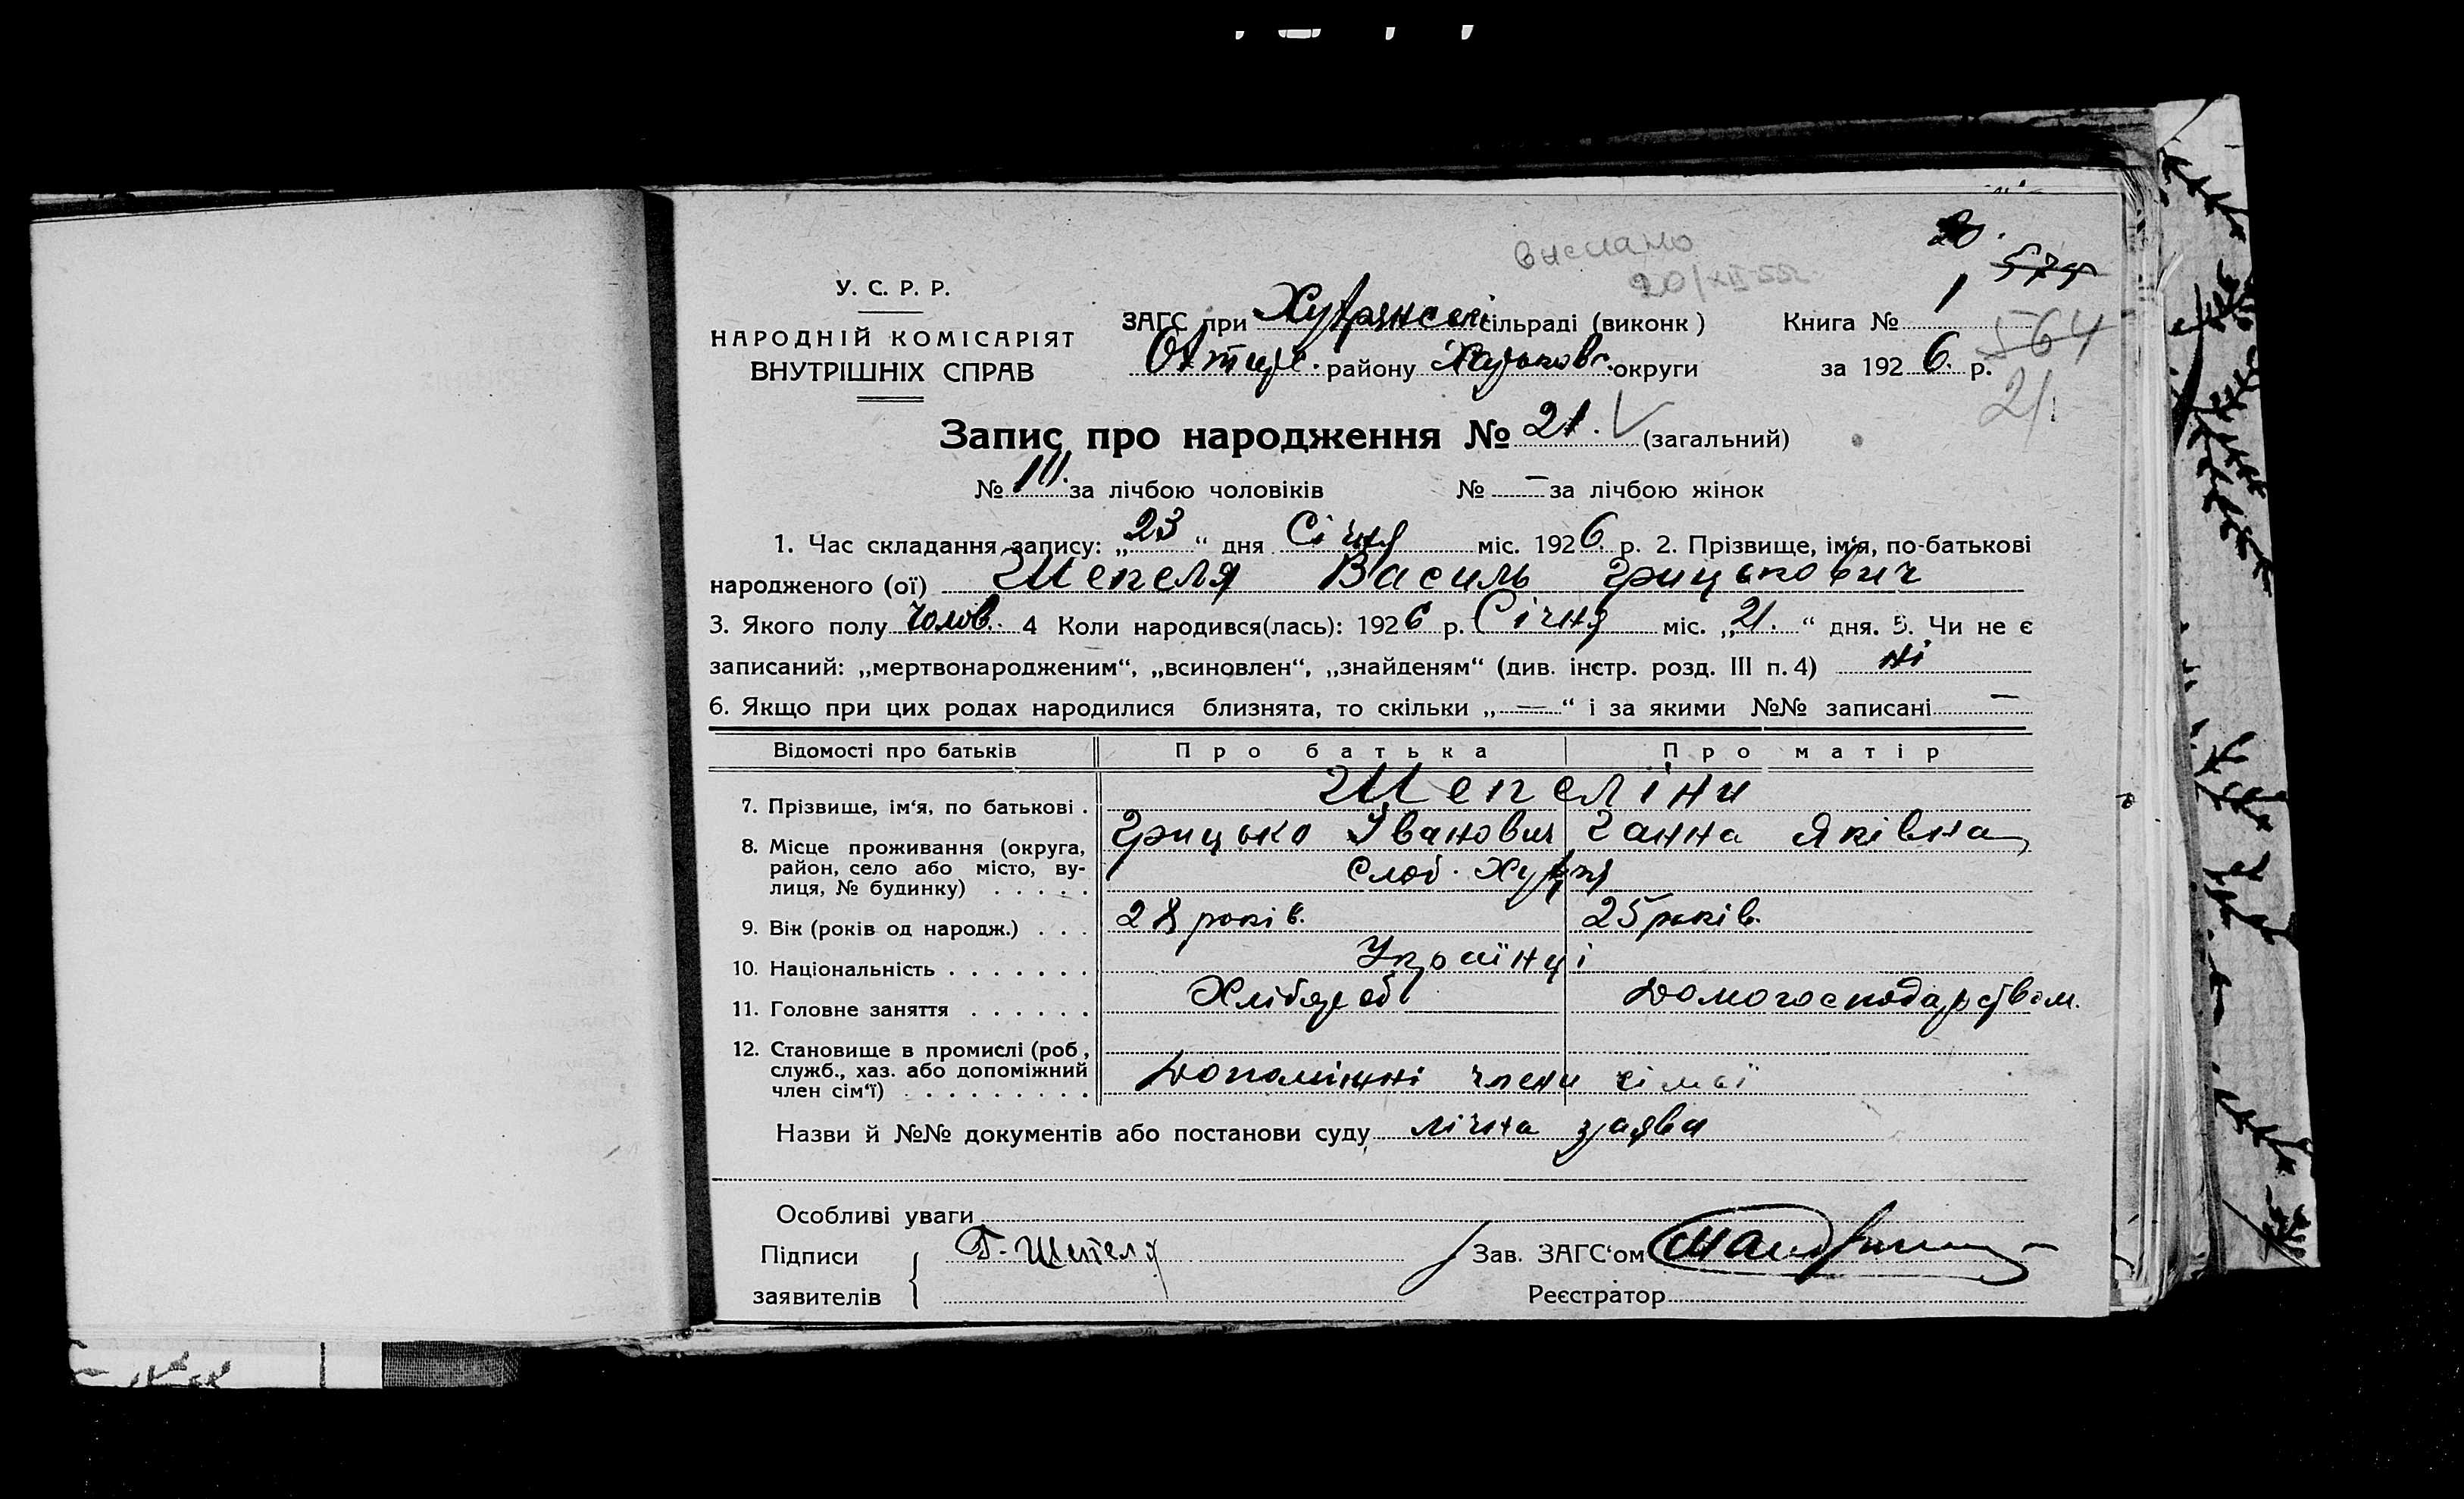 вислано
20/XII 55г.
20.
579
У. С. Р. Р.
НАРОДНІЙ КОМІСАРІЯТ
ВНУТРІШНІХ СПРАВ
ЗАГС при сільраді (виконк)
Охтир. району Харьковс. округи
Книга № 1
564
за 1926. р.
21.
Запис про народження № 21. (загальний)
№ за лічбою чоловіків № – за лічбою жінок
1. Час складання запису: „23“ дня Січня міс. 1926. р. 2. Прізвище, ім'я, по-батькові
народженого (ої) Шепеля Василь Грицькович
3. Якого полу Чолов. 4 Коли народився(лась): 1926 р. Січня міс. „21.“ дня. 5. Чи не є
записаний: „мертвонародженим“, „всиновлен“, „знайденям“ (див. інстр. розд. III п. 4) ні
6. Якщо при цих родах народилися близнята, то скільки „—“ і за якими №№ записані —
Відомості про батьків Про батька Про матір
7. Прізвище, ім'я, по батькові . Шепеліни
Грицько Іванович Ганна Яківна
8. Місце проживання (округа,
район, село або місто, ву-
лиця, № будинку) . . . . . Слоб.
9. Вік (років од народж.) . . . 28 років. 25 років.
10. Національність . . . . . . . Українці
11. Головне заняття . . . . . . Хлібороб Домогосподарством.
12. Становище в промислі (роб.,
служб., хаз. або допоміжний
член сім'ї) . . . . . . . . . Допоміжні члени сімьї
Назви й №№ документів або постанови суду лічна заява
Особливі уваги
Підписи Г. Шепеля Зав. ЗАГС'ом
заявителів Реєстратор